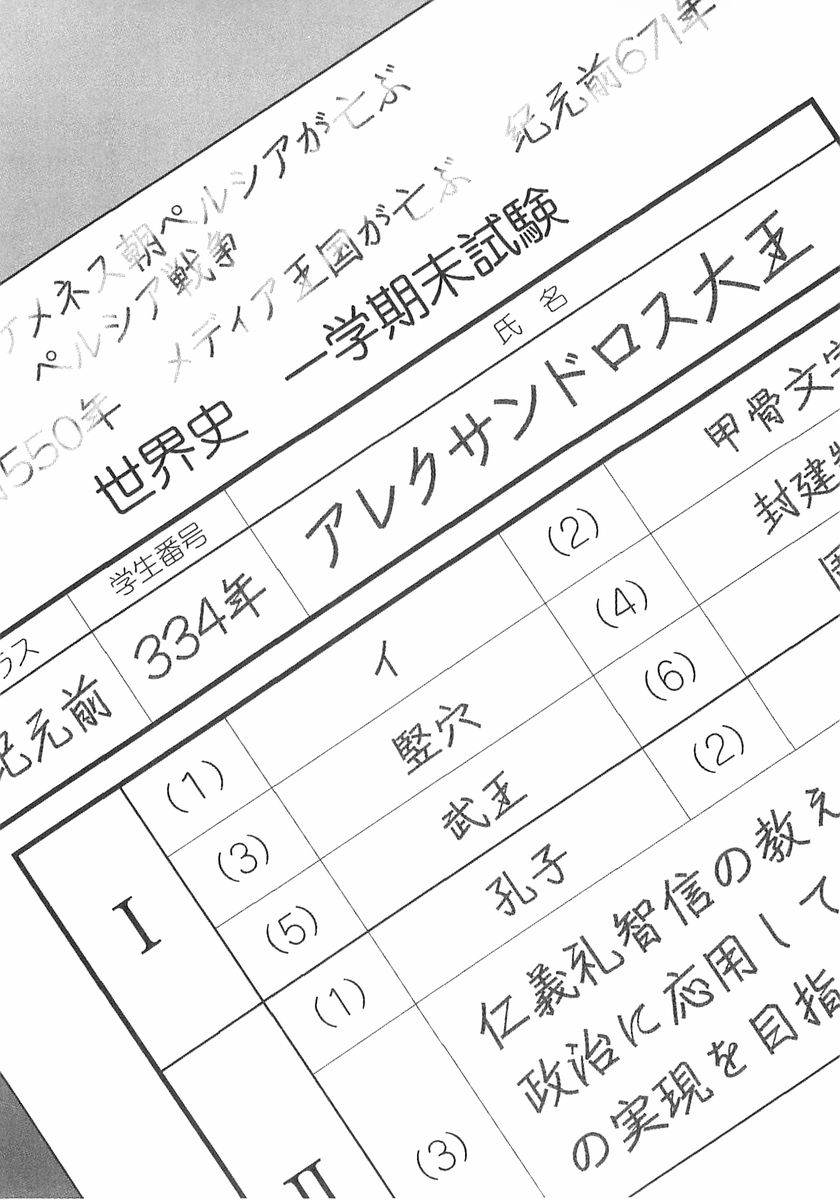 ケメネス朝ペルシアが亡ぶ
ペルシア戦争
紀元前671年
メディア王国が亡ぶ
550年
世界史 一学期末試験
ラス
学生番号
氏名
紀元前
334年
アレクサンドロス大王
I
(1)
イ
(2)
甲骨文字
(3)
竪穴
(4)
封建
(5)
武王
(6)
(1)
孔子
(2)
II
(3)
仁義礼智信の教え
政治に応用して
の実現を目指